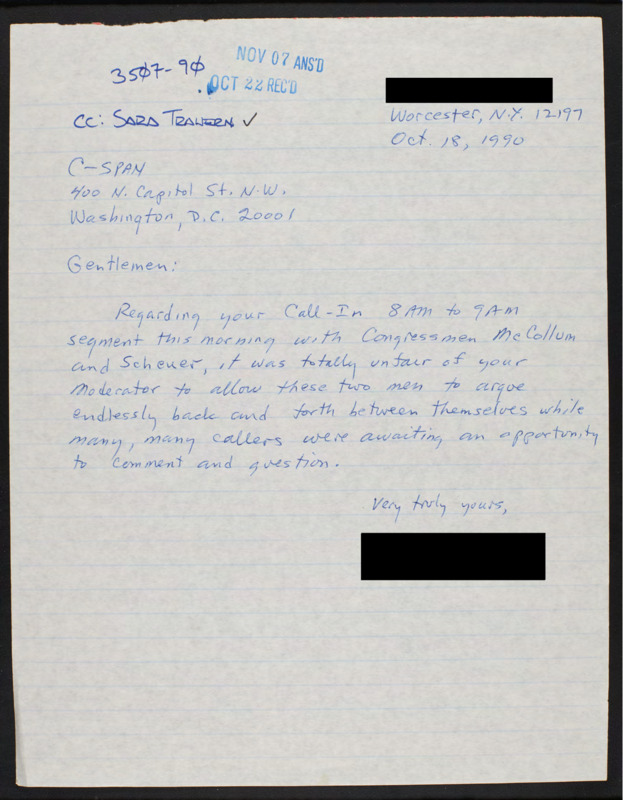 3507-90
NOV 07 ANS'D
OCT 22 REC'D
CC: SARA TRAHERN ✓
Worcester, N.Y. 12197
Oct. 18, 1990
C-SPAN
400 N. Capitol St. N.W.
Washington, D.C. 20001
Gentlemen:
Regarding your Call-In 8 AM to 9 AM
segment this morning with Congressmen McCollum
and Scheuer, it was totally unfair of your
Moderator to allow these two men to argue
endlessly back and forth between themselves while
many, many callers were awaiting an opportunity
to comment and question.
Very truly yours,